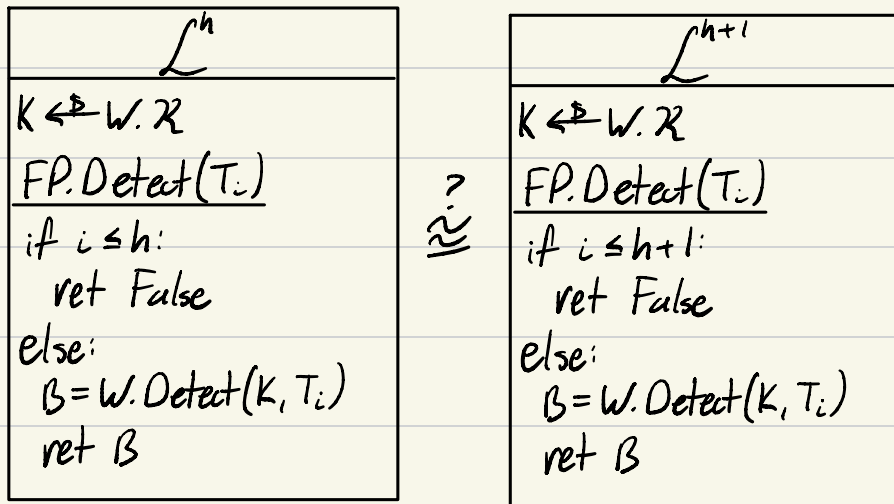 ℒ^h
K ←$ W.𝒦
FP.Detect(T_i)
if i ≤ h:
ret False
else:
B = W.Detect(K, T_i)
ret B
?
≋
ℒ^{h+1}
K ←$ W.𝒦
FP.Detect(T_i)
if i ≤ h+1:
ret False
else:
B = W.Detect(K, T_i)
ret B